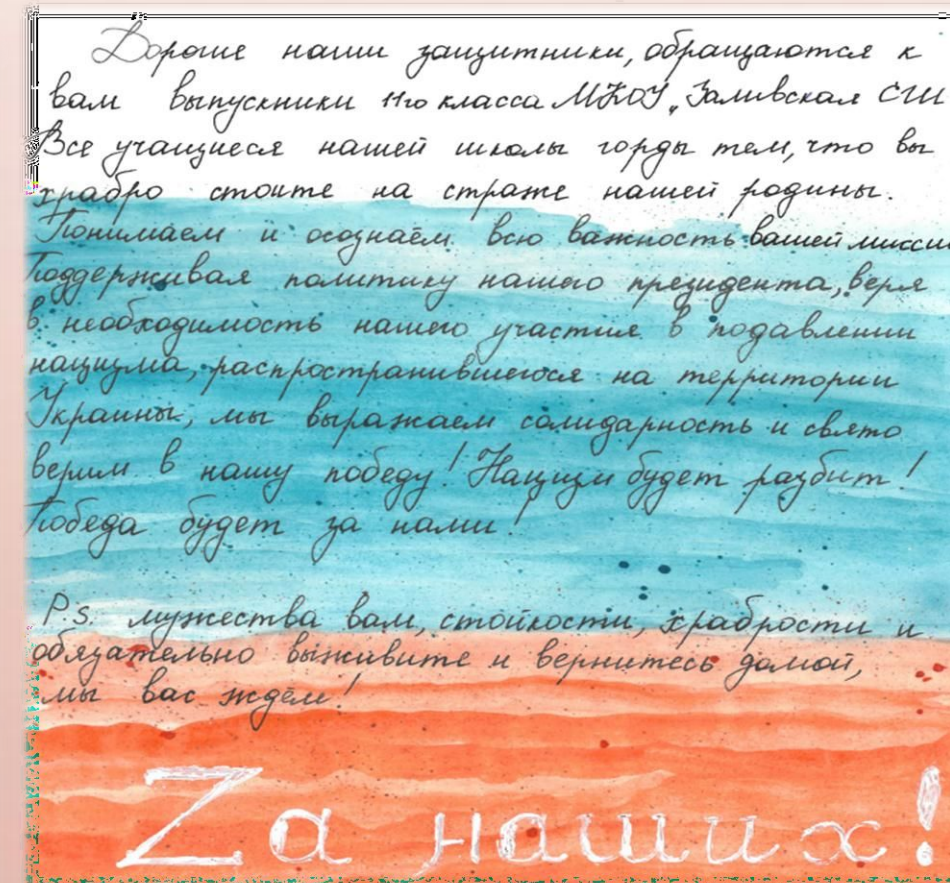 Дорогие наши защитники, обращаются к
вам выпускники 11го класса МКОУ „Заливская СШ
Все учащиеся нашей школы горды тем, что вы
храбро стоите на страже нашей родины.
Понимаем и осознаём всю важность вашей миссии
Поддерживая политику нашего президента, веря
в необходимость нашего участия в подавлении
нацизма, распространившегося на территории
Украины, мы выражаем солидарность и свято
верим в нашу победу! Нацизм будет разбит!
Победа будет за нами!
P.S. мужества вам, стойкости, храбрости и
обязательно выживите и вернитесь домой,
мы вас ждём!
Zа наших!